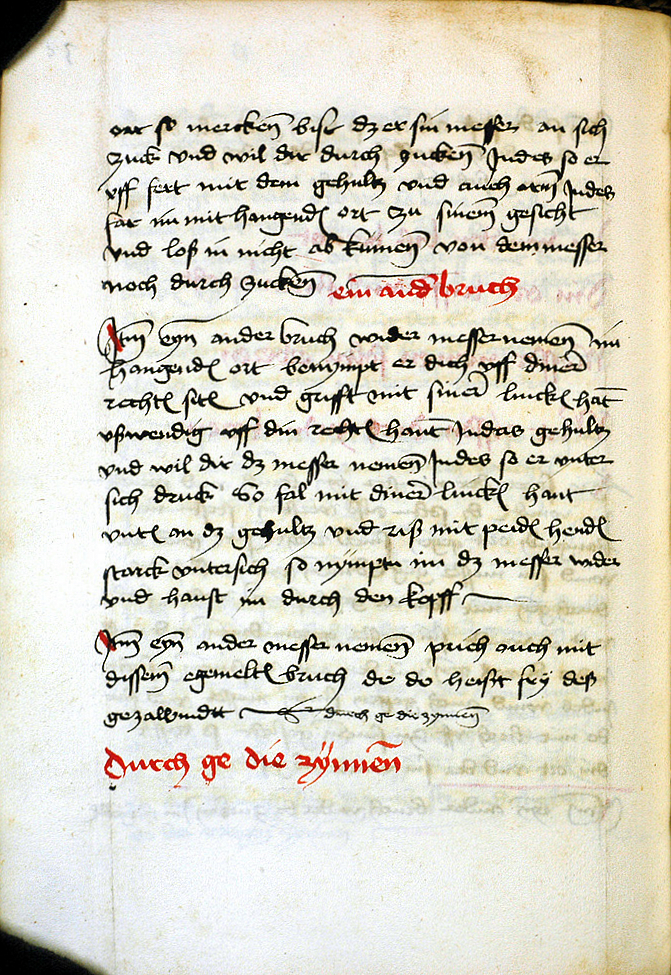 ort so mercken bist dz er sin messer an sich
zuck vnd wil dir durch zucken Indes so er
vff fert mit dem gehultz vnd auch Indes
far im mit hangend ort zu sinem gesicht
vnd loß in nicht ab kumen von dem messer
noch durch zucken ein and bruch
Itm eyn ander bruch wider messer nemen im
hangend ort benympt er dich vff diner
rechte site vnd grifft mit siner lincke hant
vßwendig vff din rechte hant In das gehultz
vnd wil dir dz messer nemen Indes so er vnter
sich druck So fal mit diner linck hant
vnte an dz gehultz vnd riß mit peide hende
starck vntersich so nymptu im dz messer wider
vnd haust in durch den kopff
Itm eyn ander messer nemen prich ouch mit
dissem egemelte bruch der do heist frey des
gezalbindtt durch ge die zynnen
Durch ge die zynnen